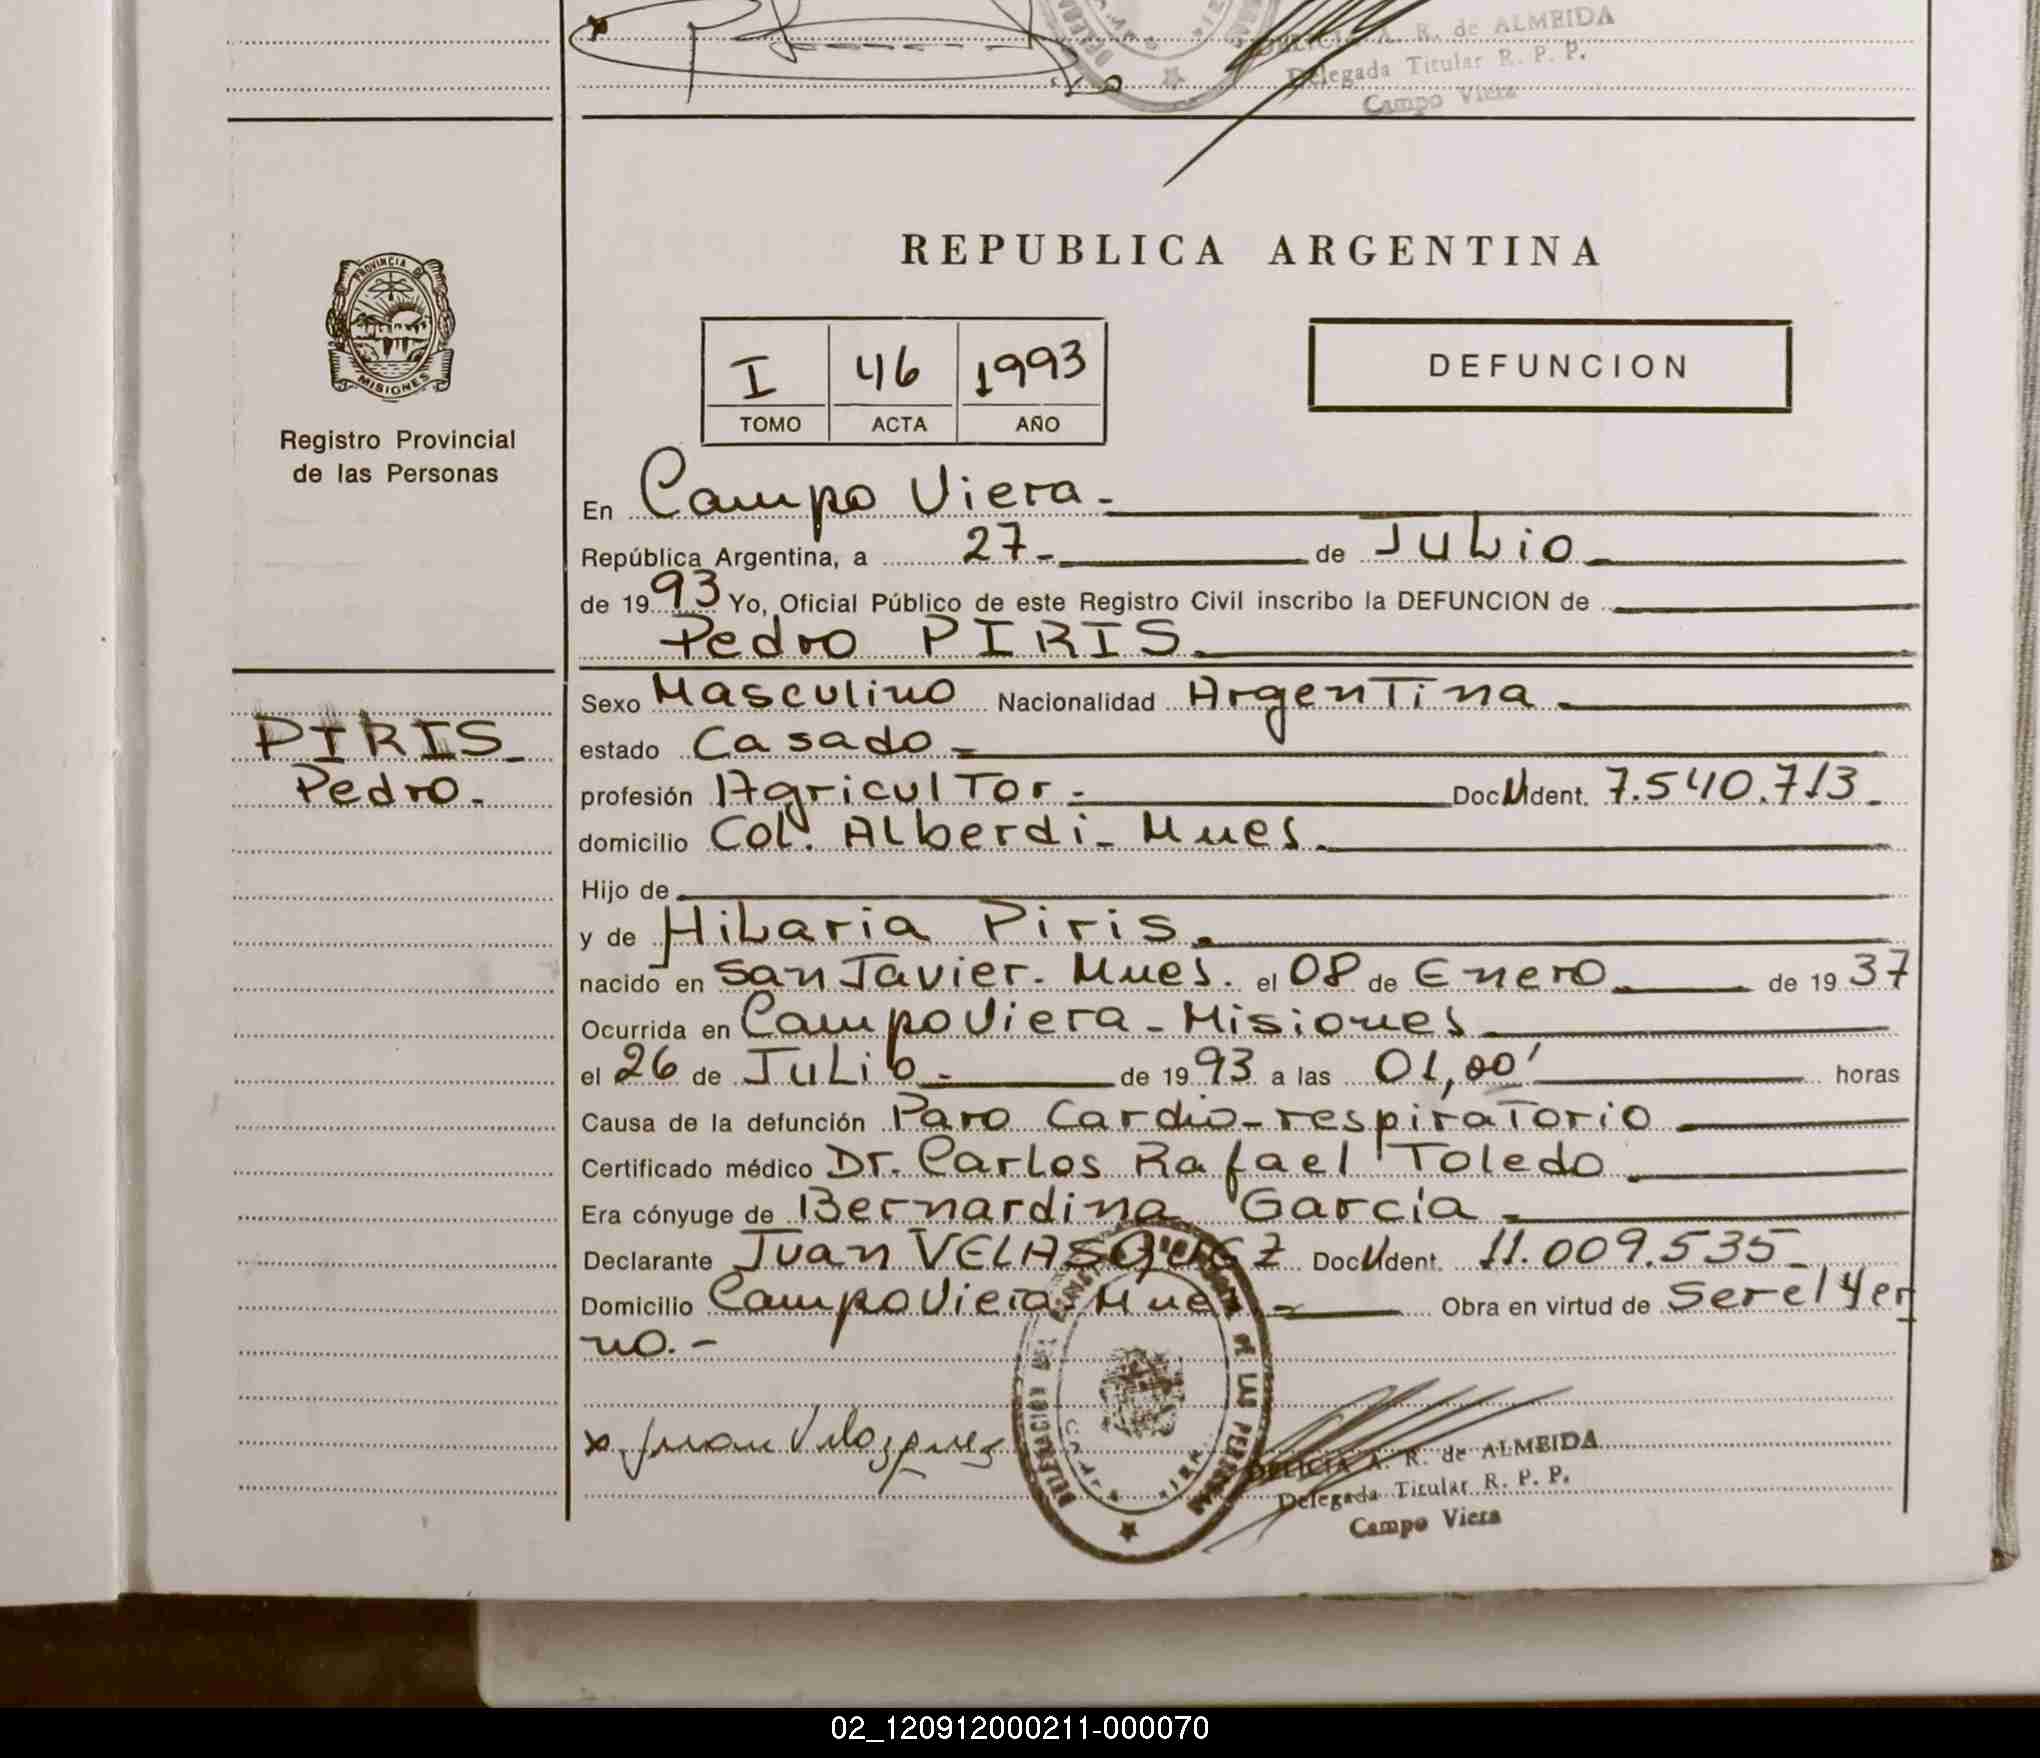 DELICIA A. R. de ALMEIDA
Delegada Titular R. P. P.
Campo Viera
PROVINCIA DE
MISIONES
Registro Provincial
de las Personas
REPUBLICA ARGENTINA
I 46 1993
TOMO ACTA AÑO
DEFUNCION
En Campo Viera.-
República Argentina, a 27- de Julio
de 1993 Yo, Oficial Público de este Registro Civil inscribo la DEFUNCION de
Pedro PIRIS.
PIRIS.
Pedro.-
Sexo Masculino Nacionalidad Argentina
estado Casado-
profesión Agricultor.- Doc. Ident. 7.540.713.
domicilio Col. Alberdi- Mnes.
Hijo de
y de Hilaria Piris.
nacido en San Javier. Mnes. el 08 de Enero de 1937
Ocurrida en Campo Viera - Misiones
el 26 de Julio- de 1993 a las 01,00' horas
Causa de la defunción Paro Cardio-respiratorio
Certificado médico Dr. Carlos Rafael Toledo
Era cónyuge de Bernardina García
Declarante Juan VELASQUEZ Doc. Ident. 11.009.535-
Domicilio Campo Viera. Mnes. Obra en virtud de Ser el yer
no.-
x Juan Velazquez
DELEGACION DE LAS PERSONAS
DELICIA A. R. de ALMEIDA
Delegada Titular R. P. P.
Campo Viera
02_120912000211-000070